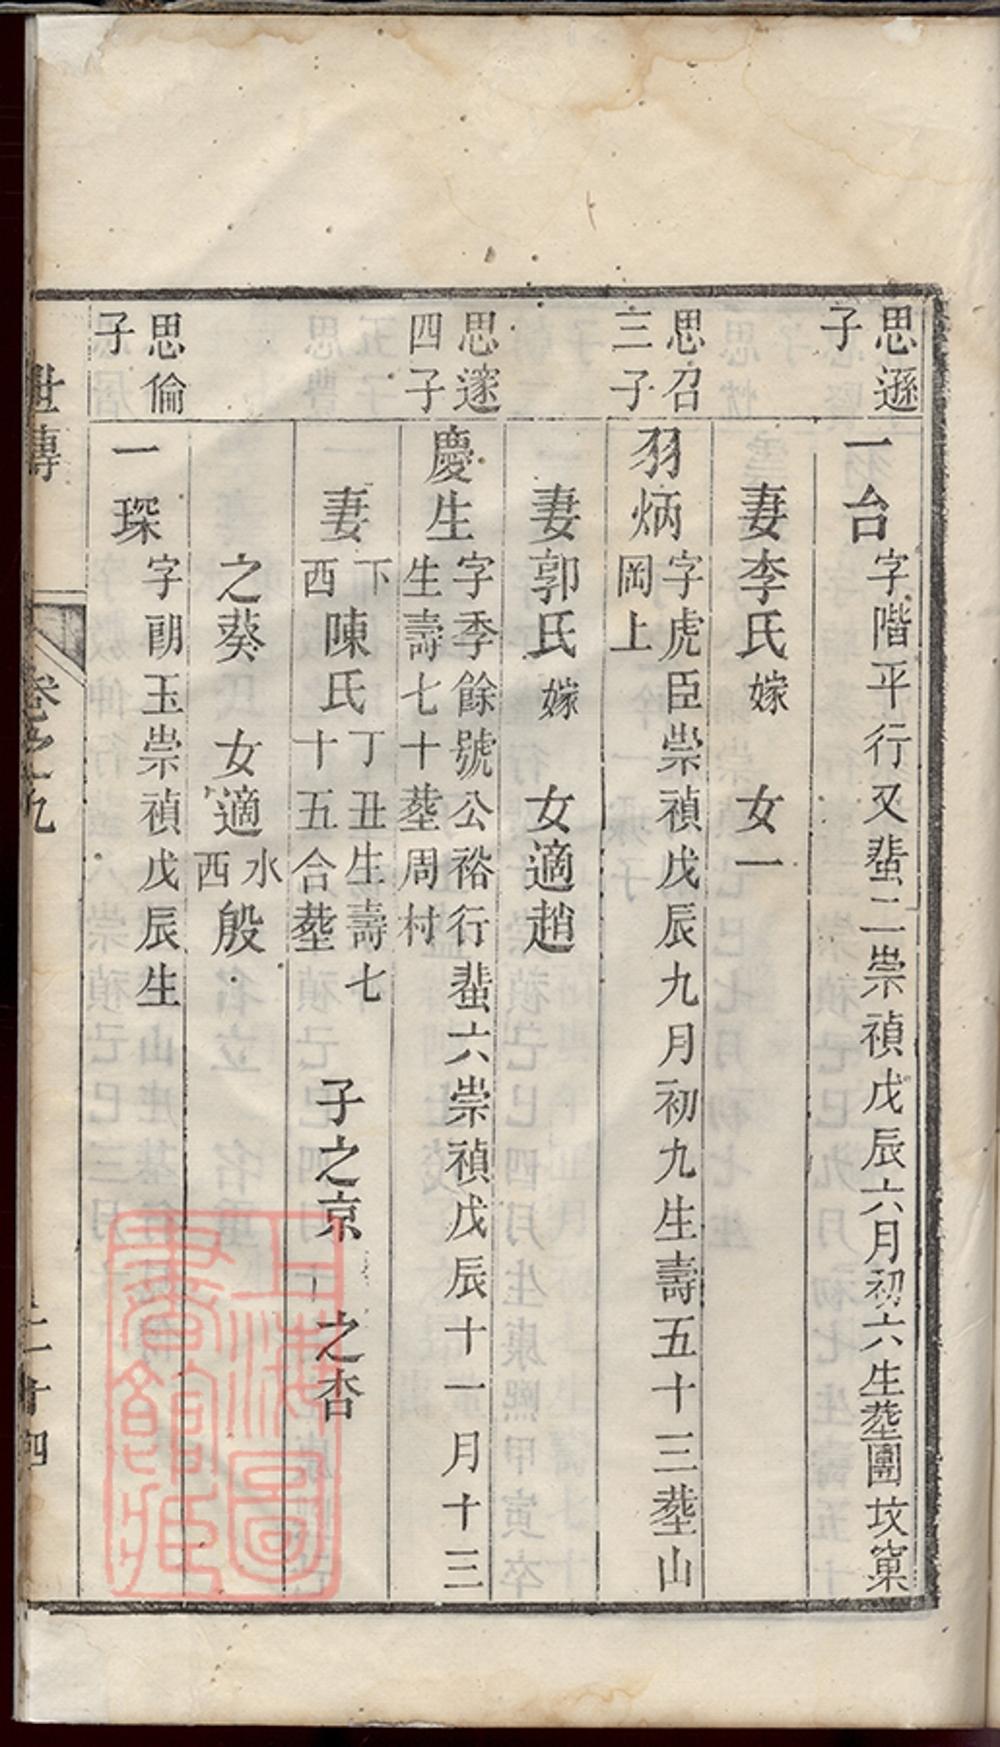 思遜
子
一台
字階平行又蜚二崇禎戊辰六月初六生塟團坟窠
妻李氏嫁 女一
思召
三子
羽炳
字虎臣崇禎戊辰九月初九生壽五十三塟山
岡上
妻郭氏嫁 女適趙
思邃
四子
慶生
字季餘號公裕行蜚六崇禎戊辰十一月十三
生壽七十塟周村
妻
下
西
陳氏
丁丑生壽七
十五合塟
子之京 之杏
之葵 女適
水
西
殷
思倫
子
一琛
字朗玉崇禎戊辰生
世傳 卷之九
上海圖
書館藏